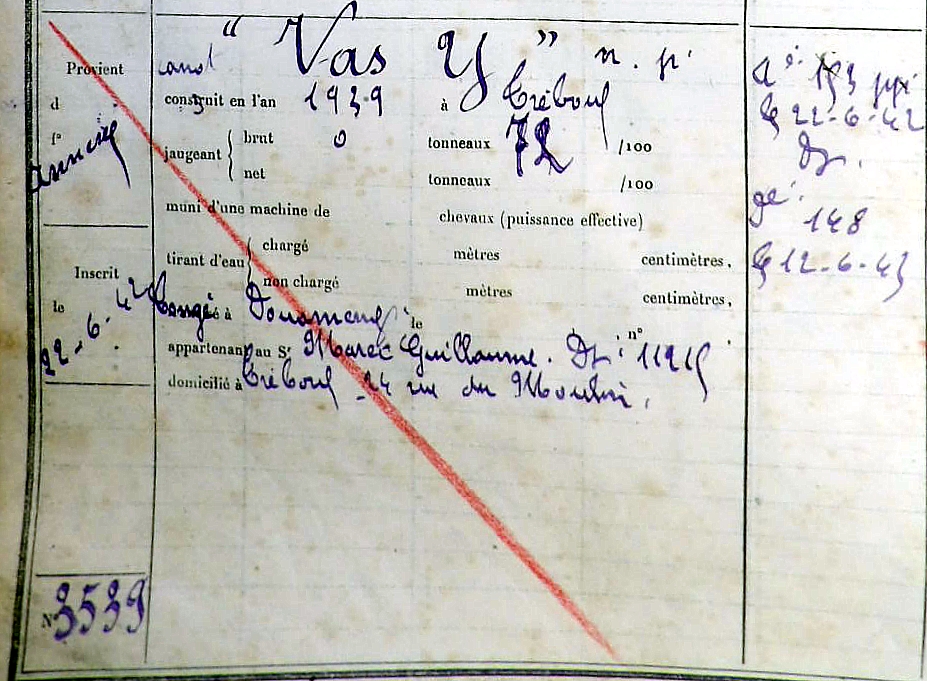 Provient
d
fo
annexé
Inscrit
le
22-6-42
No 3539
canot “ Vas Y ” n. p.
construit en l'an 1939 à Tréboul
jaugeant { brut 0 tonneaux 72 /100
net tonneaux /100
muni d'une machine de chevaux (puissance effective)
tirant d'eau { chargé mètres centimètres,
non chargé mètres centimètres,
à Douarnenez le no
appartenant au Sr Marec Guillaume. Dz : 11215
domicilié à Tréboul 24 rue du Moulin.
Aé 193
le 22-6-42
Dz.
148
le 12-6-43